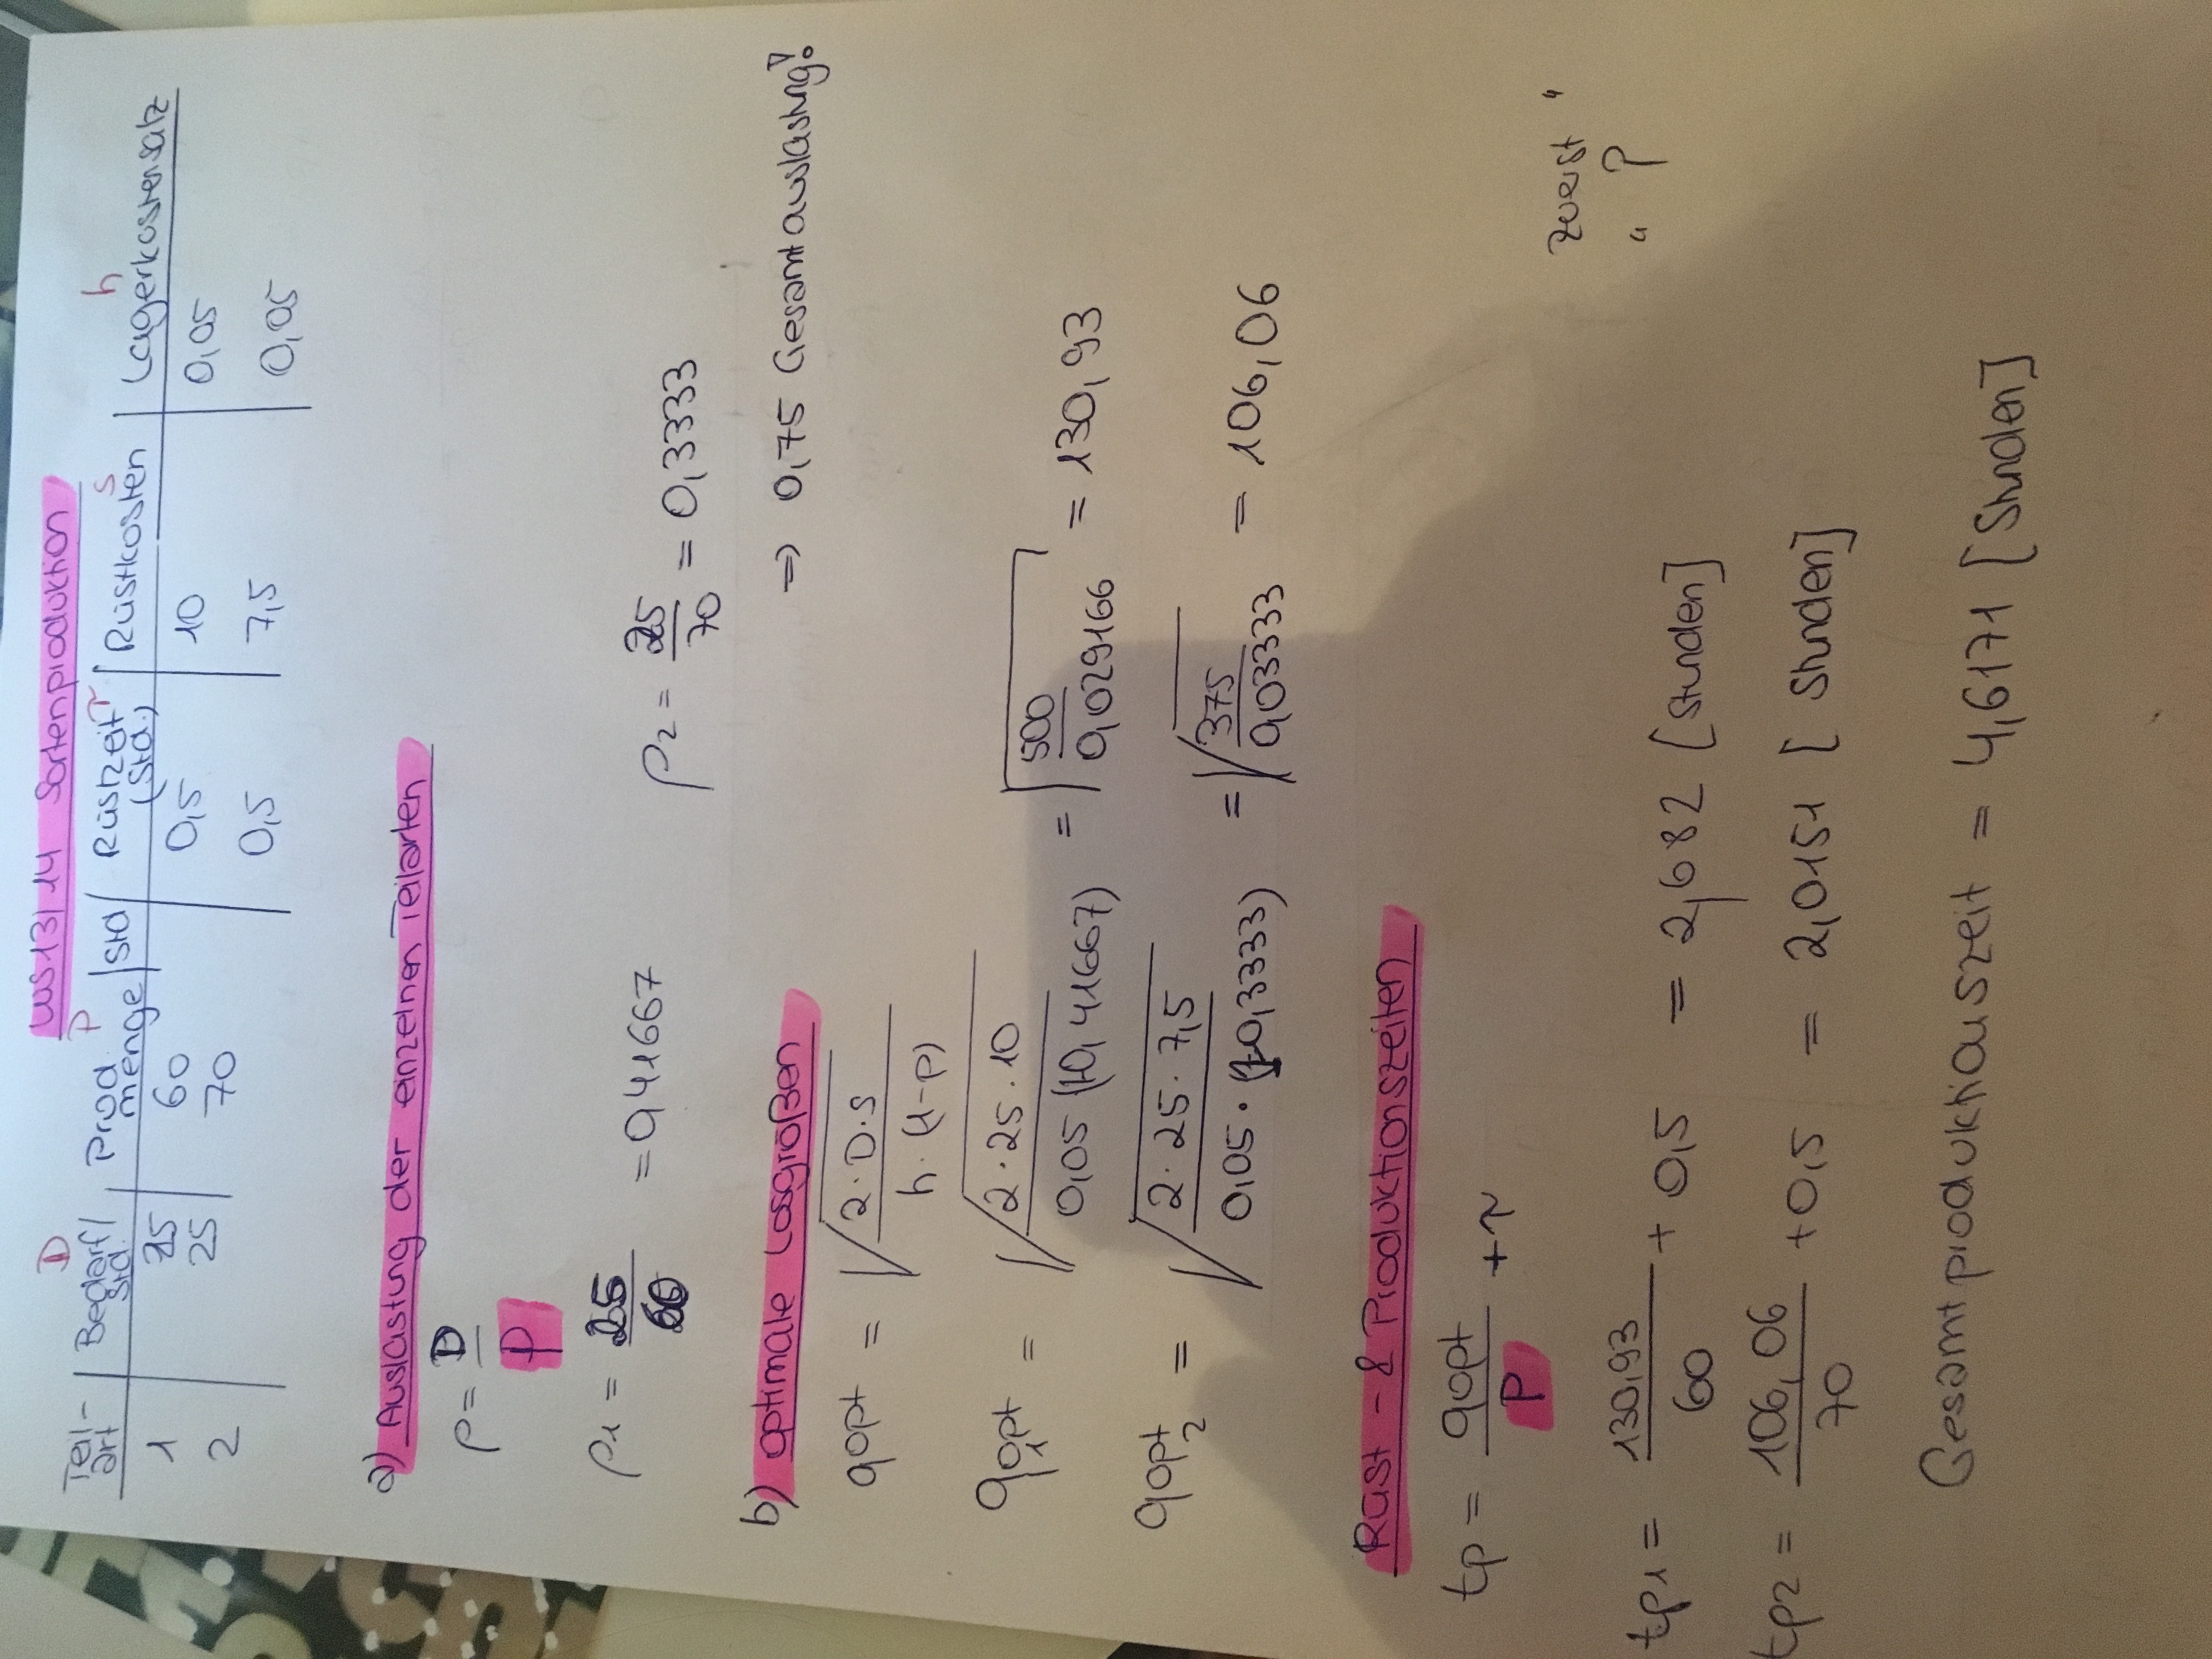 WS 13/14 Sortenproduktion
D P r s h
Teil-art | Bedarf/Std. | Prod.menge/Std | Rüstzeit (Std.) | Rüstkosten | Lagerkostensatz
1 25 60 0,5 10 0,05
2 25 70 0,5 7,5 0,05
a) Auslastung der einzelnen Teilarten
ρ = D/P
ρ1 = 25/60 = 0,41667 ρ2 = 25/70 = 0,3333
=> 0,75 Gesamtauslastung!
b) optimale Losgrößen
qopt = √(2·D·s / h·(1-ρ))
qopt1 = √(2·25·10 / 0,05 (1-0,41667)) = √(500 / 0,029166) = 130,93
qopt2 = √(2·25·7,5 / 0,05·(1-0,3333)) = √(375 / 0,03333) = 106,06
Rüst- & Produktionszeiten
tp = qopt/P + r
zuerst "
" ?
tp1 = 130,93/60 + 0,5 = 2,682 [Stunden]
tp2 = 106,06/70 + 0,5 = 2,0151 [Stunden]
Gesamtproduktionszeit = 4,6171 [Stunden]